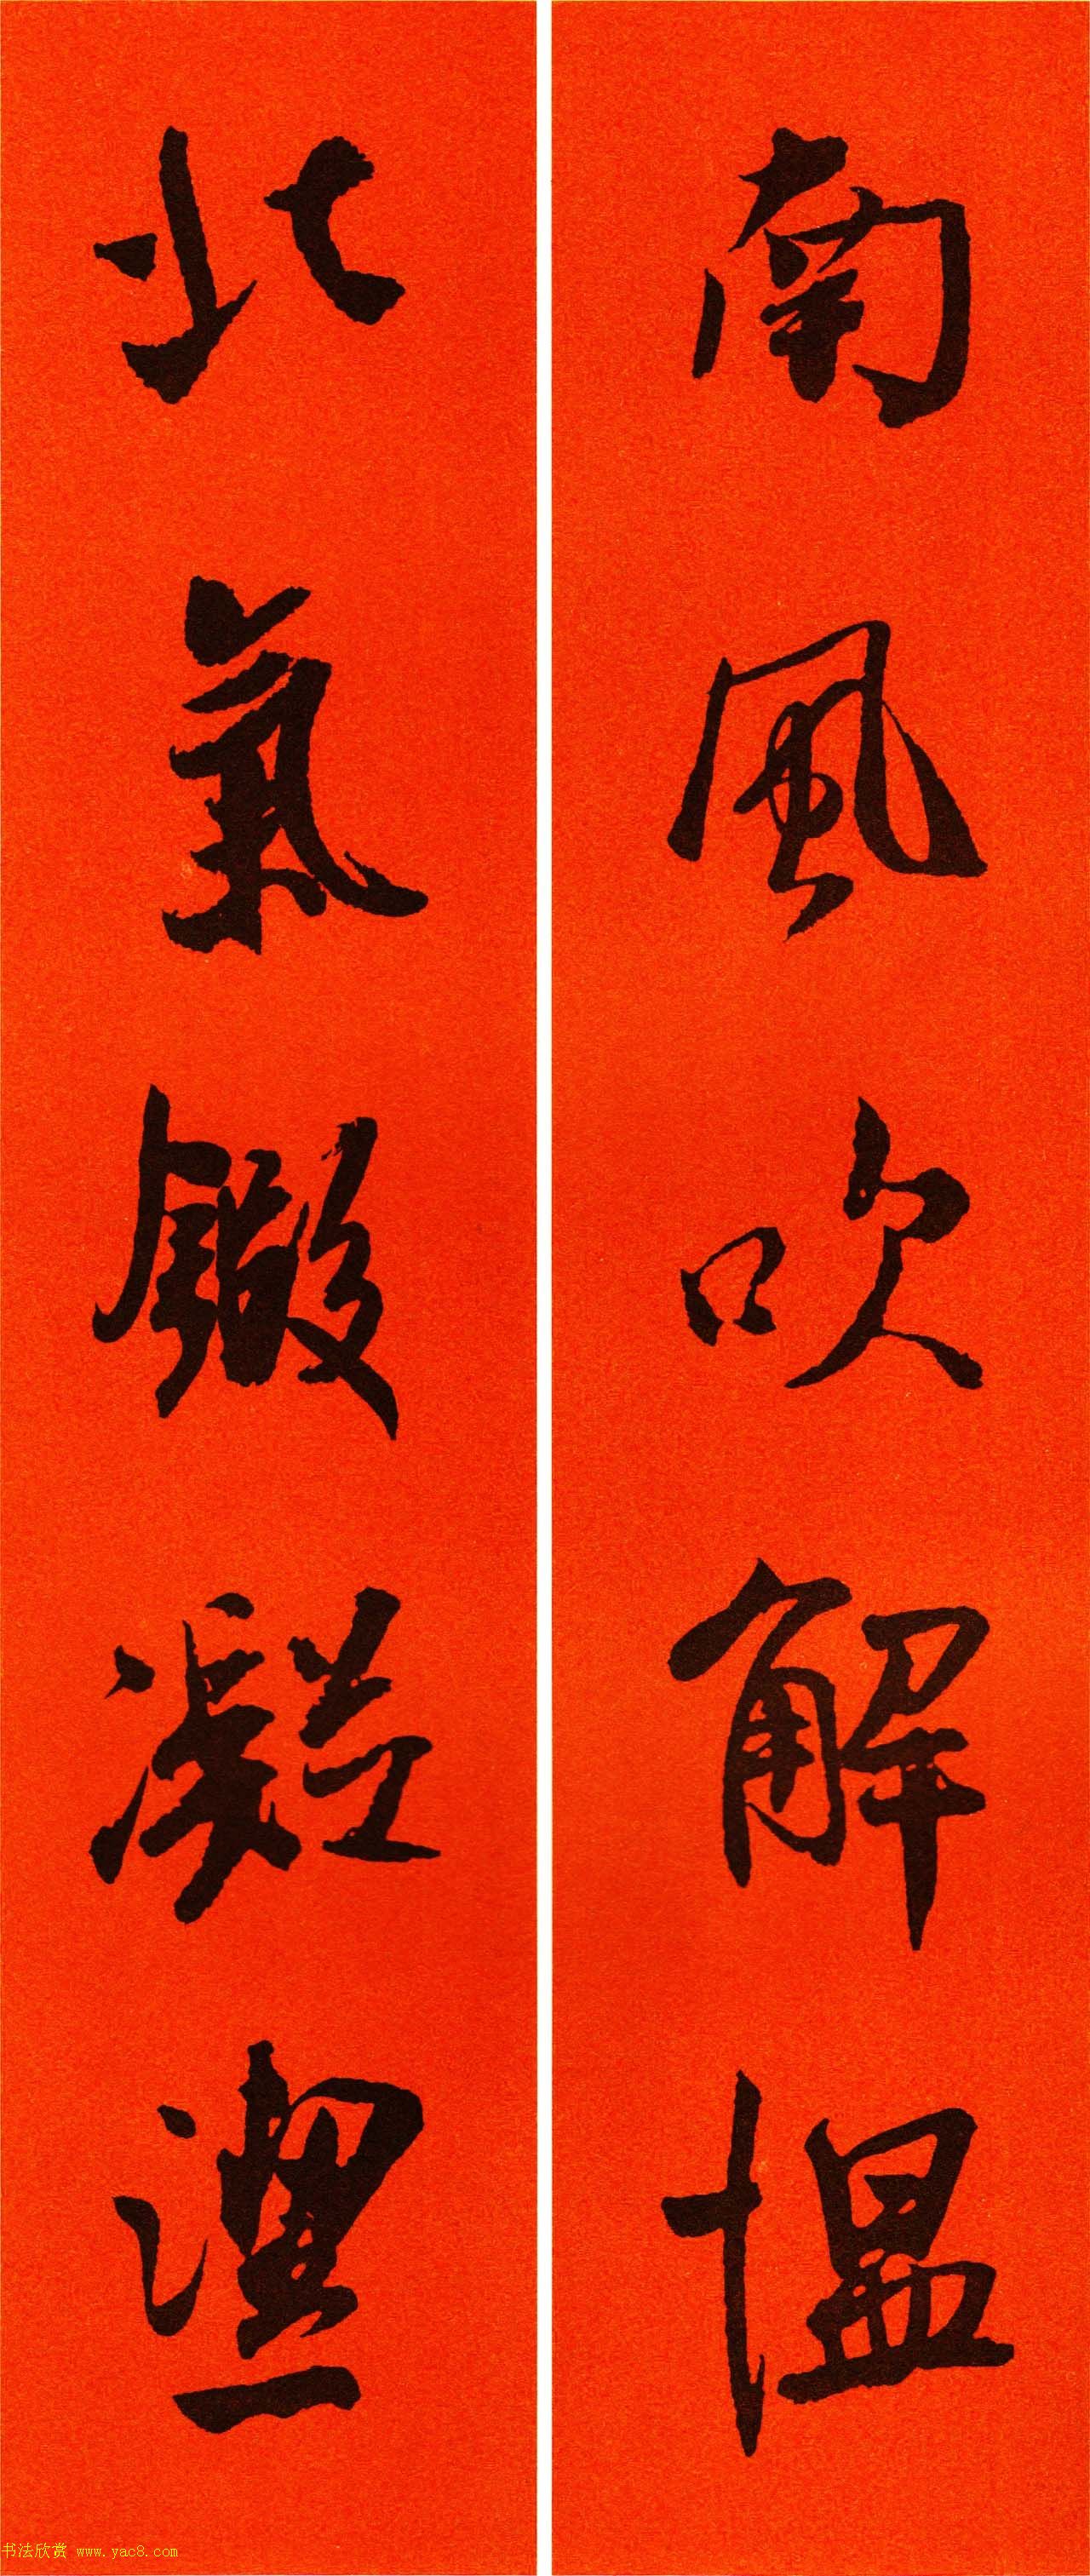 南風吹解愠
北氣鍛凝
书法欣赏 www.yac8.com